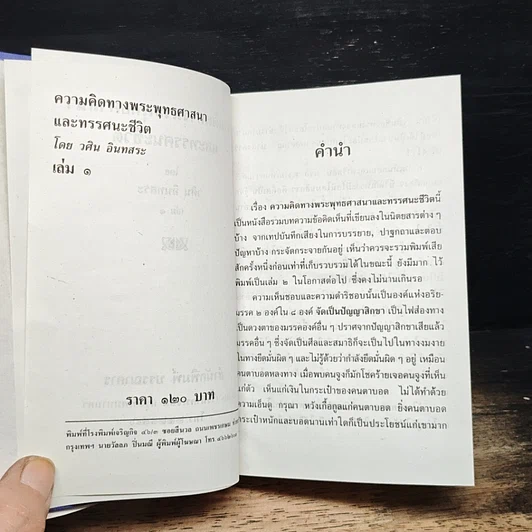 ความคิดทางพระพุทธศาสนา
และทรรศนะชีวิต
โดย วศิน อินทสระ
เล่ม ๑
ราคา ๑๒๐ บาท
พิมพ์ที่โรงพิมพ์เจริญกิจ ๔๖/๓ ซอยสีนวล ถนนเพชรเกษม
กรุงเทพฯ นายวัลลภ ปิ่นมณี ผู้พิมพ์ผู้โฆษณา โทร.
คำนำ
เรื่อง ความคิดทางพระพุทธศาสนาและทรรศนะชีวิตนี้
เป็นหนังสือรวมบทความข้อคิดเห็นที่เขียนลงในนิตยสารต่าง ๆ
บ้าง จากเทปบันทึกเสียงในการบรรยาย, ปาฐกถาและตอบ
ปัญหาบ้าง กระจัดกระจายกันอยู่ เห็นว่าควรจะรวมพิมพ์เสีย
สักครั้งหนึ่งก่อนเท่าที่เก็บรวบรวมได้ในขณะนี้ ยังมีมาก ไว้
พิมพ์เป็นเล่ม ๒ ในโอกาสต่อไป ซึ่งคงไม่นานเกินรอ
ความเห็นชอบและความดำริชอบนั้นเป็นองค์แห่งอริย-
มรรค ๒ องค์ใน ๘ องค์ จัดเป็นปัญญาสิกขา เป็นไฟส่องทาง
เป็นดวงตาของมรรคองค์อื่น ๆ ปราศจากปัญญาสิกขาเสียแล้ว
มรรคองค์อื่น ๆ ซึ่งจัดเป็นศีลและสมาธิก็จะเป็นไปในทางงมงาย
ในทางยึดมั่นผิด ๆ และไม่รู้ด้วยว่ากำลังยึดมั่นผิด ๆ อยู่ เหมือน
คนตาบอดหลงทาง เมื่อพบคนจูงก็มักโชคร้ายเจอคนจูงที่เห็น
แก่ตัว เห็นแก่เงินในกระเป๋าของคนตาบอด ไม่ได้ทำด้วย
ความเอ็นดู กรุณา หวังเกื้อกูลแก่คนตาบอด ยิ่งคนตาบอด
กระเป๋าหนักและบอดนานเท่าใดก็เป็นประโยชน์แก่เขามาก